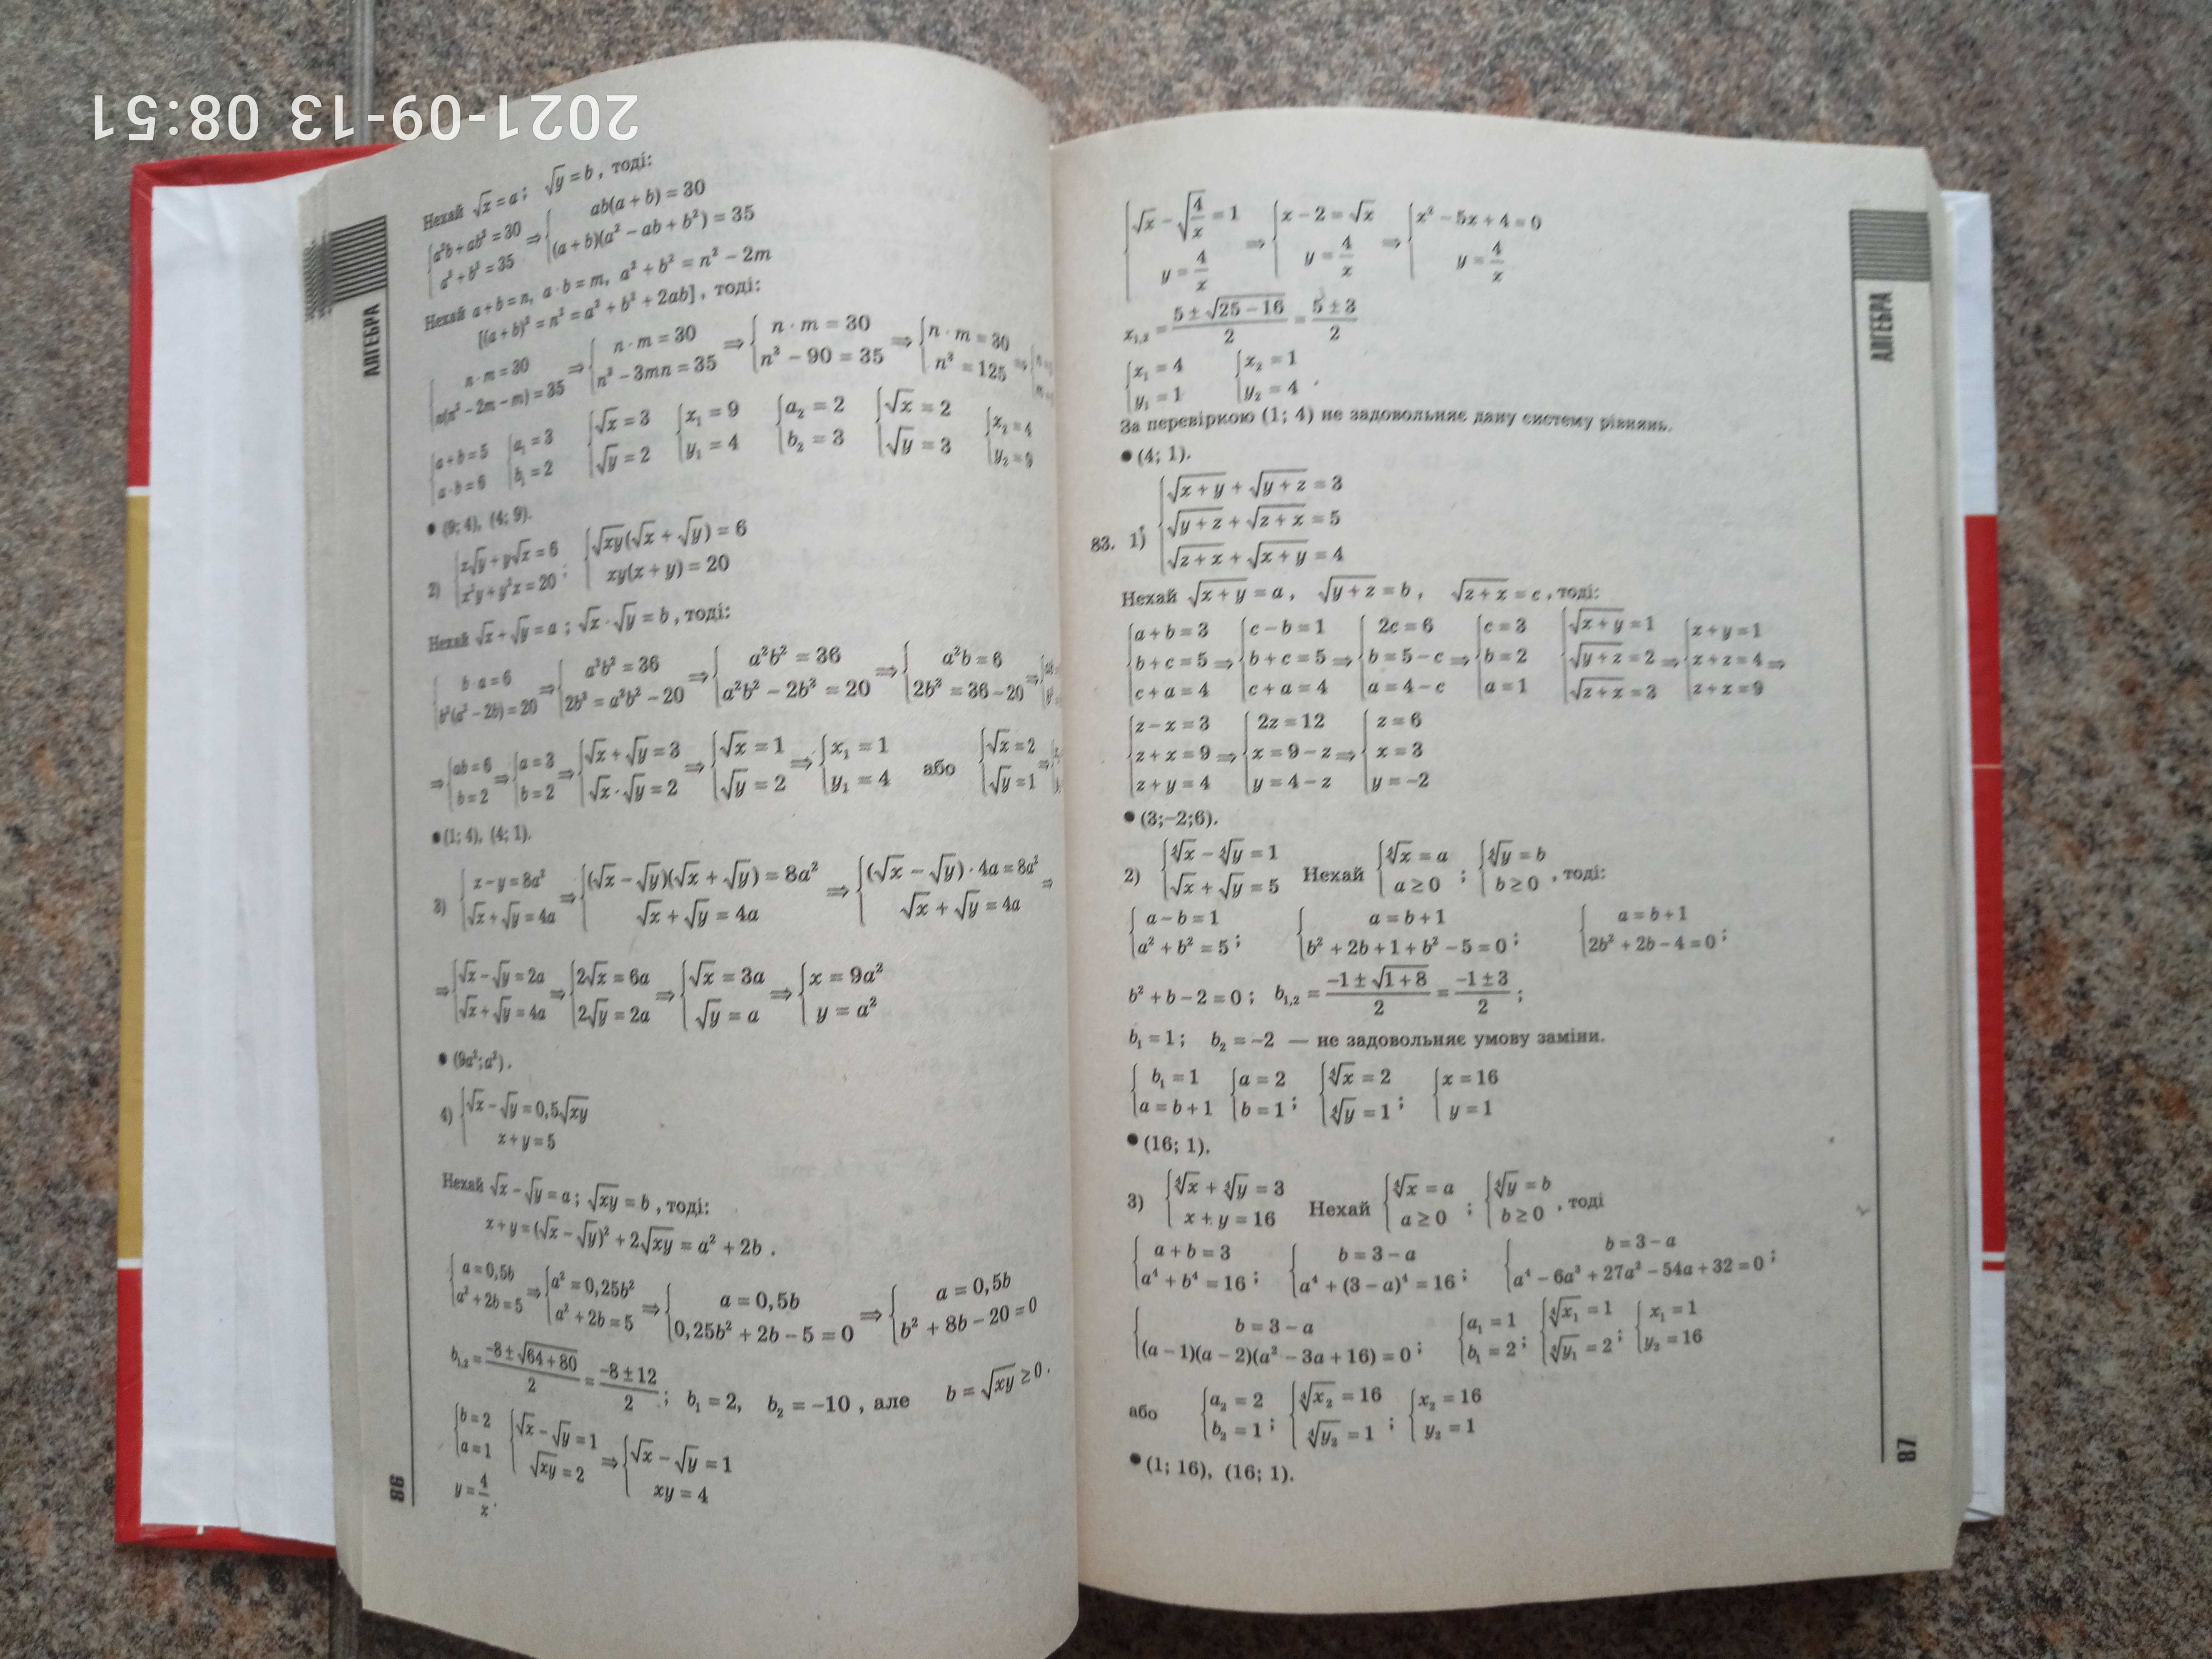 2021-09-13 08:51
АЛГЕБРА
Нехай √x = a; √y = b, тоді:
{a²b + ab² = 30; a³ + b³ = 35 ⇒ {ab(a + b) = 30; (a + b)(a² − ab + b²) = 35
Нехай a + b = n, a · b = m, a² + b² = n² − 2m
[(a + b)² = n² = a² + b² + 2ab], тоді:
{n · m = 30; n(n² − 2m − m) = 35 ⇒ {n · m = 30; n³ − 3mn = 35 ⇒ {n · m = 30; n³ − 90 = 35 ⇒ {n · m = 30; n³ = 125 ⇒
{a + b = 5; a · b = 6 {a₁ = 3; b₁ = 2 {√x = 3; √y = 2 {x₁ = 9; y₁ = 4 {a₂ = 2; b₂ = 3 {√x = 2; √y = 3 {x₂ = 4; y₂ = 9
● (9; 4), (4; 9).
2) {x√y + y√x = 6; x²y + y²x = 20 ; {√xy(√x + √y) = 6; xy(x + y) = 20
Нехай √x + √y = a; √x · √y = b, тоді:
{b · a = 6; b²(a² − 2b) = 20 ⇒ {a²b² = 36; 2b³ = a²b² − 20 ⇒ {a²b² = 36; a²b² − 2b³ = 20 ⇒ {a²b = 6; 2b³ = 36 − 20 ⇒
⇒ {ab = 6; b = 2 ⇒ {a = 3; b = 2 ⇒ {√x + √y = 3; √x · √y = 2 ⇒ {√x = 1; √y = 2 ⇒ {x₁ = 1; y₁ = 4 або {√x = 2; √y = 1 ⇒
● (1; 4), (4; 1).
3) {x − y = 8a²; √x + √y = 4a ⇒ {(√x − √y)(√x + √y) = 8a²; √x + √y = 4a ⇒ {(√x − √y) · 4a = 8a²; √x + √y = 4a ⇒
⇒ {√x − √y = 2a; √x + √y = 4a ⇒ {2√x = 6a; 2√y = 2a ⇒ {√x = 3a; √y = a ⇒ {x = 9a²; y = a²
● (9a²; a²).
4) {√x − √y = 0,5√xy; x + y = 5
Нехай √x − √y = a; √xy = b, тоді:
x + y = (√x − √y)² + 2√xy = a² + 2b.
{a = 0,5b; a² + 2b = 5 ⇒ {a² = 0,25b²; a² + 2b = 5 ⇒ {a = 0,5b; 0,25b² + 2b − 5 = 0 ⇒ {a = 0,5b; b² + 8b − 20 = 0
b₁,₂ = (−8 ± √(64 + 80))/2 = (−8 ± 12)/2; b₁ = 2, b₂ = −10, але b = √xy ≥ 0.
{b = 2; a = 1 {√x − √y = 1; √xy = 2 ⇒ {√x − √y = 1; xy = 4
y = 4/x.
86
{√x − √(4/x) = 1; y = 4/x ⇒ {x − 2 = √x; y = 4/x ⇒ {x² − 5x + 4 = 0; y = 4/x
x₁,₂ = (5 ± √(25 − 16))/2 = (5 ± 3)/2
{x₁ = 4; y₁ = 1 {x₂ = 1; y₂ = 4.
За перевіркою (1; 4) не задовольняє дану систему рівнянь.
● (4; 1).
83. 1) {√(x + y) + √(y + z) = 3; √(y + z) + √(z + x) = 5; √(z + x) + √(x + y) = 4
Нехай √(x + y) = a, √(y + z) = b, √(z + x) = c, тоді:
{a + b = 3; b + c = 5; c + a = 4 ⇒ {c − b = 1; b + c = 5; c + a = 4 ⇒ {2c = 6; b = 5 − c; a = 4 − c ⇒ {c = 3; b = 2; a = 1 {√(x + y) = 1; √(y + z) = 2; √(z + x) = 3 ⇒ {x + y = 1; x + z = 4; z + x = 9 ⇒
{z − x = 3; z + x = 9; z + y = 4 ⇒ {2z = 12; x = 9 − z; y = 4 − z ⇒ {z = 6; x = 3; y = −2
● (3;−2;6).
2) {∜x − ∜y = 1; √x + √y = 5 Нехай {∜x = a; a ≥ 0 ; {∜y = b; b ≥ 0 , тоді:
{a − b = 1; a² + b² = 5 ; {a = b + 1; b² + 2b + 1 + b² − 5 = 0 ; {a = b + 1; 2b² + 2b − 4 = 0 ;
b² + b − 2 = 0; b₁,₂ = (−1 ± √(1 + 8))/2 = (−1 ± 3)/2;
b₁ = 1; b₂ = −2 — не задовольняє умову заміни.
{b₁ = 1; a = b + 1 {a = 2; b = 1 ; {∜x = 2; ∜y = 1 ; {x = 16; y = 1
● (16; 1).
3) {∜x + ∜y = 3; x + y = 16 Нехай {∜x = a; a ≥ 0 ; {∜y = b; b ≥ 0 , тоді
{a + b = 3; a⁴ + b⁴ = 16 ; {b = 3 − a; a⁴ + (3 − a)⁴ = 16 ; {b = 3 − a; a⁴ − 6a³ + 27a² − 54a + 32 = 0 ;
{b = 3 − a; (a − 1)(a − 2)(a² − 3a + 16) = 0 ; {a₁ = 1; b₁ = 2 ; {∜x₁ = 1; ∜y₁ = 2 ; {x₁ = 1; y₂ = 16
або {a₂ = 2; b₂ = 1 ; {∜x₂ = 16; ∜y₂ = 1 ; {x₂ = 16; y₂ = 1
● (1; 16), (16; 1).
АЛГЕБРА
87